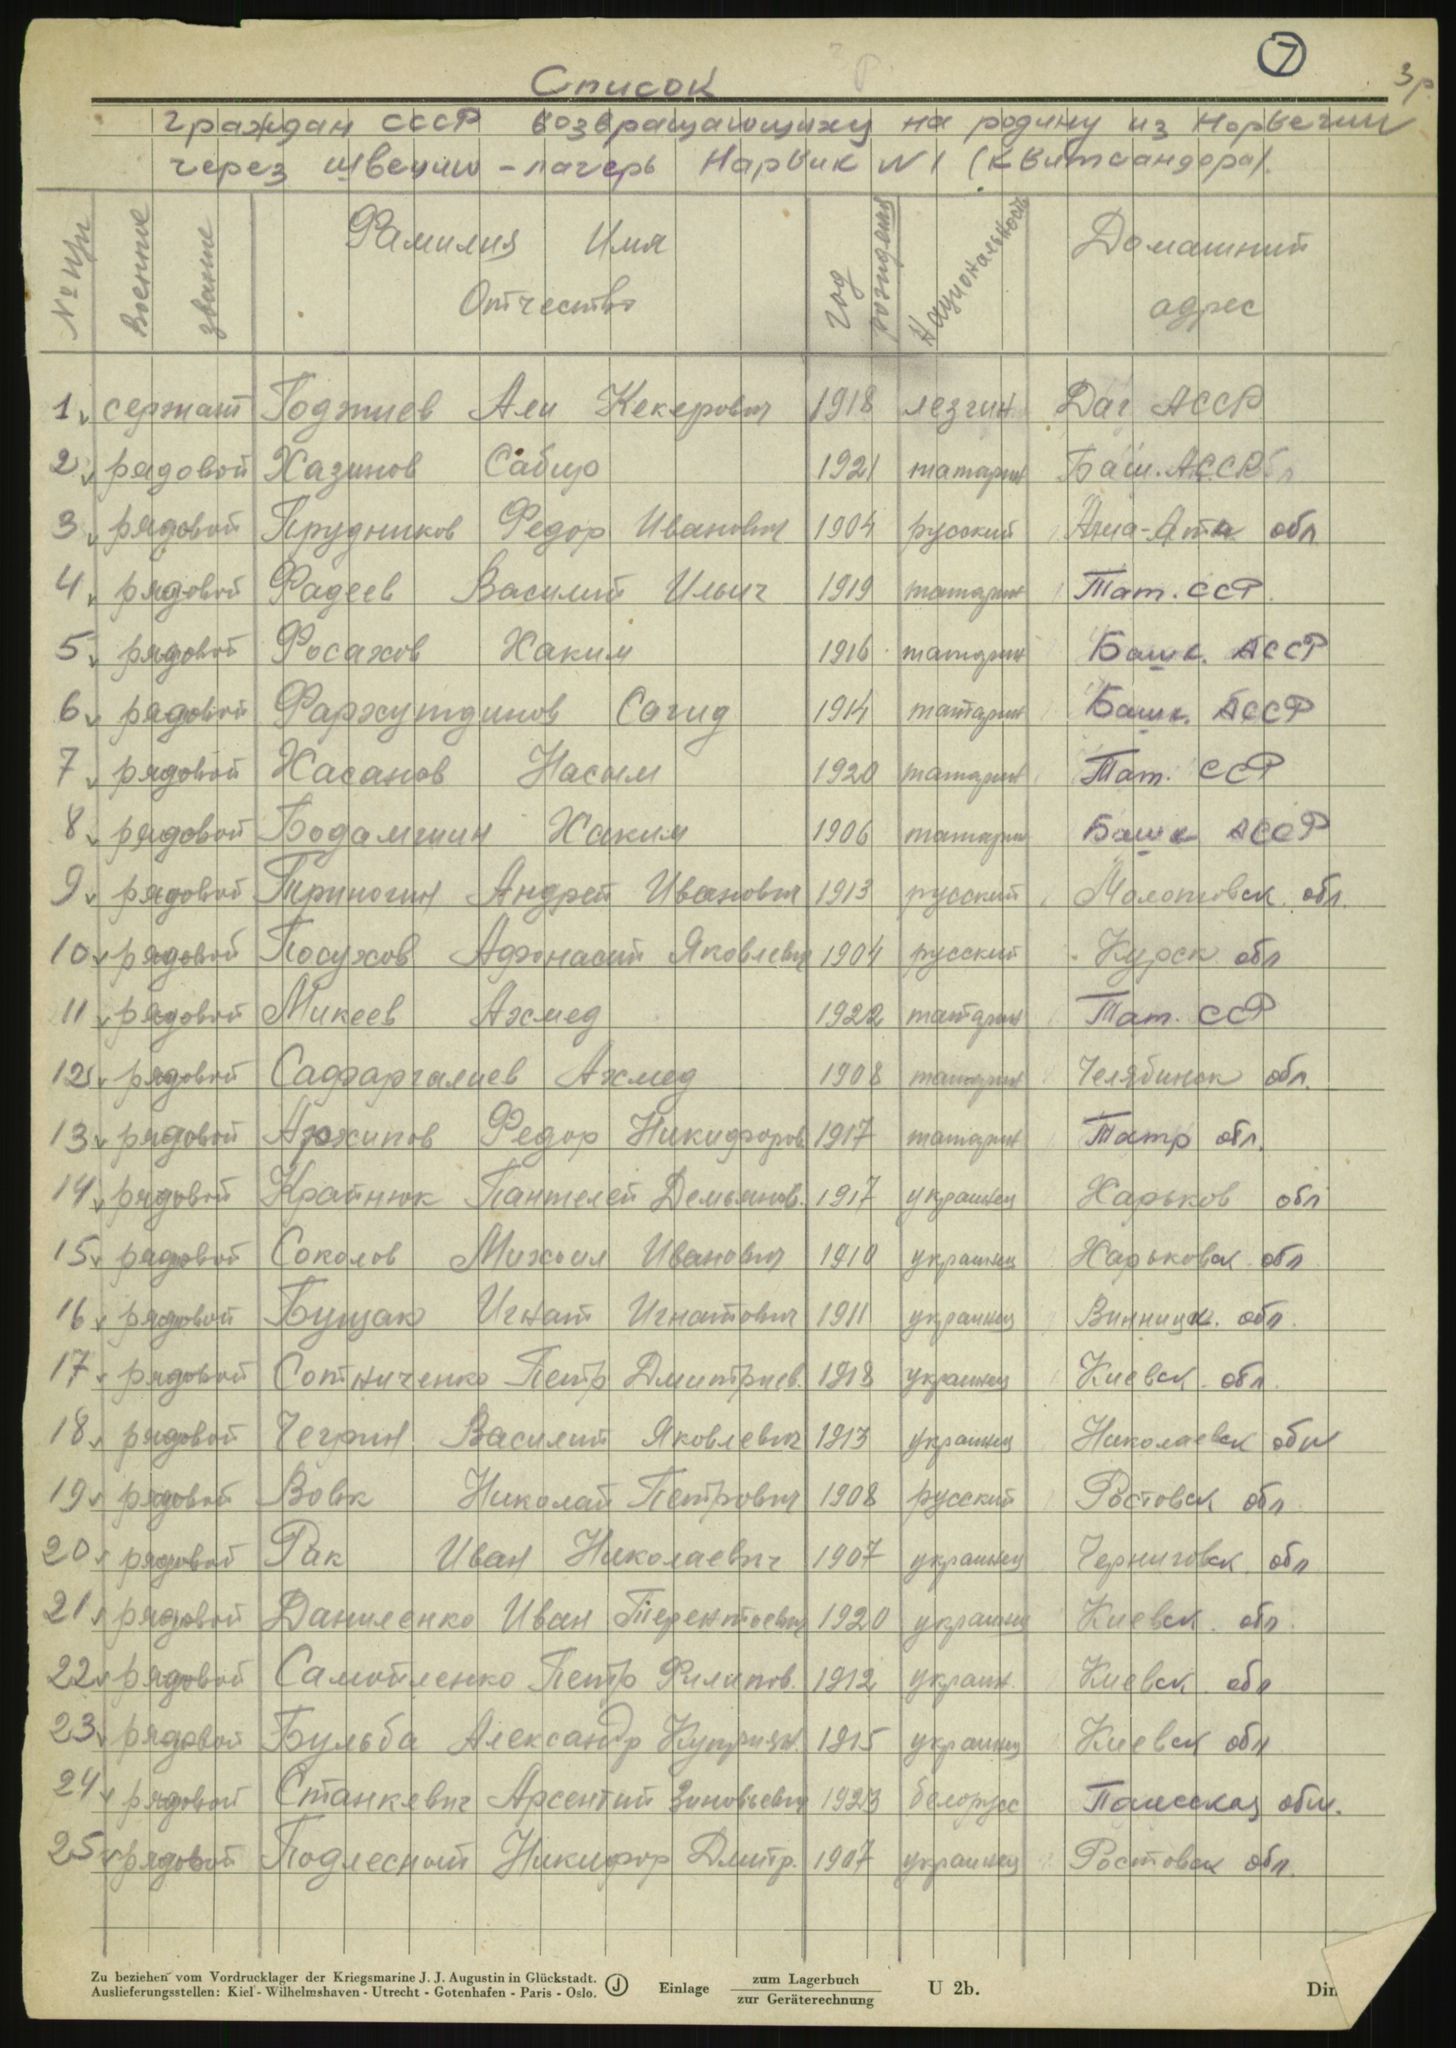 7
3р
Список
граждан СССР возвращающихся на родину из Норвегии
через Швецию - лагерь Нарвик N 1 (Квитсандора).
№ п/п Военные звание Фамилия Имя Отчество Год рождения Национальность Домашний адрес
1 сержант Годжиев Али Кекерович 1918 лезгин Даг АССР
2 рядовой Хазинов Сабир 1921 татарин Баш. АССР
3 рядовой Прудников Федор Иванович 1904 русский Алма-Ата обл
4 рядовой Фадеев Василий Ильич 1919 татарин Тат. ССР.
5 рядовой Фосахов Хаким 1916 татарин Башк. АССР
6 рядовой Фархутдинов Сагид 1914 татарин Башк. АССР
7 рядовой Хасанов Насым 1920 татарин Тат. ССР
8 рядовой Бодамшин Хаким 1906 татарин Башк АССР
9 рядовой Трипогин Андрей Иванович 1913 русский Молотовск. обл.
10 рядовой Посухов Афонасий Яковлевич 1904 русский Курск обл
11 рядовой Микеев Ахмед 1922 татарин Тат. ССР
12 рядовой Сафаргалиев Ахмед 1908 татарин Челябинск обл.
13 рядовой Архипов Федор Никифоров 1917 татарин Татр обл.
14 рядовой Крайнюк Пантелей Демьянов. 1917 украинец Харьков обл
15 рядовой Соколов Михаил Иванович 1910 украинец Харьковск обл
16 рядовой Бущак Игнат Игнатович 1911 украинец Винницк. обл.
17 рядовой Сотниченко Петр Дмитриев. 1918 украинец Киевск обл.
18 рядовой Чегрин Василий Яковлевич 1913 украинец Николаевск обл
19 рядовой Вовк Николай Петрович 1908 русский Ростовск обл
20 рядовой Рак Иван Николаевич 1907 украинец Черниговск. обл
21 рядовой Даниленко Иван Терентьевич 1920 украинец Киевск. обл.
22 рядовой Самойленко Петр Филипов. 1912 украин. Киевск обл
23 рядовой Бульба Александр Куприян. 1915 украинец Киевск обл
24 рядовой Станкевич Арсентий Зиновьевич 1923 белорусс Полесская обл.
25 рядовой Подлесный Никифор Дмитр. 1907 украинец Ростовск обл.
Zu beziehen vom Vordrucklager der Kriegsmarine J. J. Augustin in Glückstadt.
Auslieferungsstellen: Kiel - Wilhelmshaven - Utrecht - Gotenhafen - Paris - Oslo.
J
Einlage zum Lagerbuch
zur Geräterechnung
U 2b.
Din